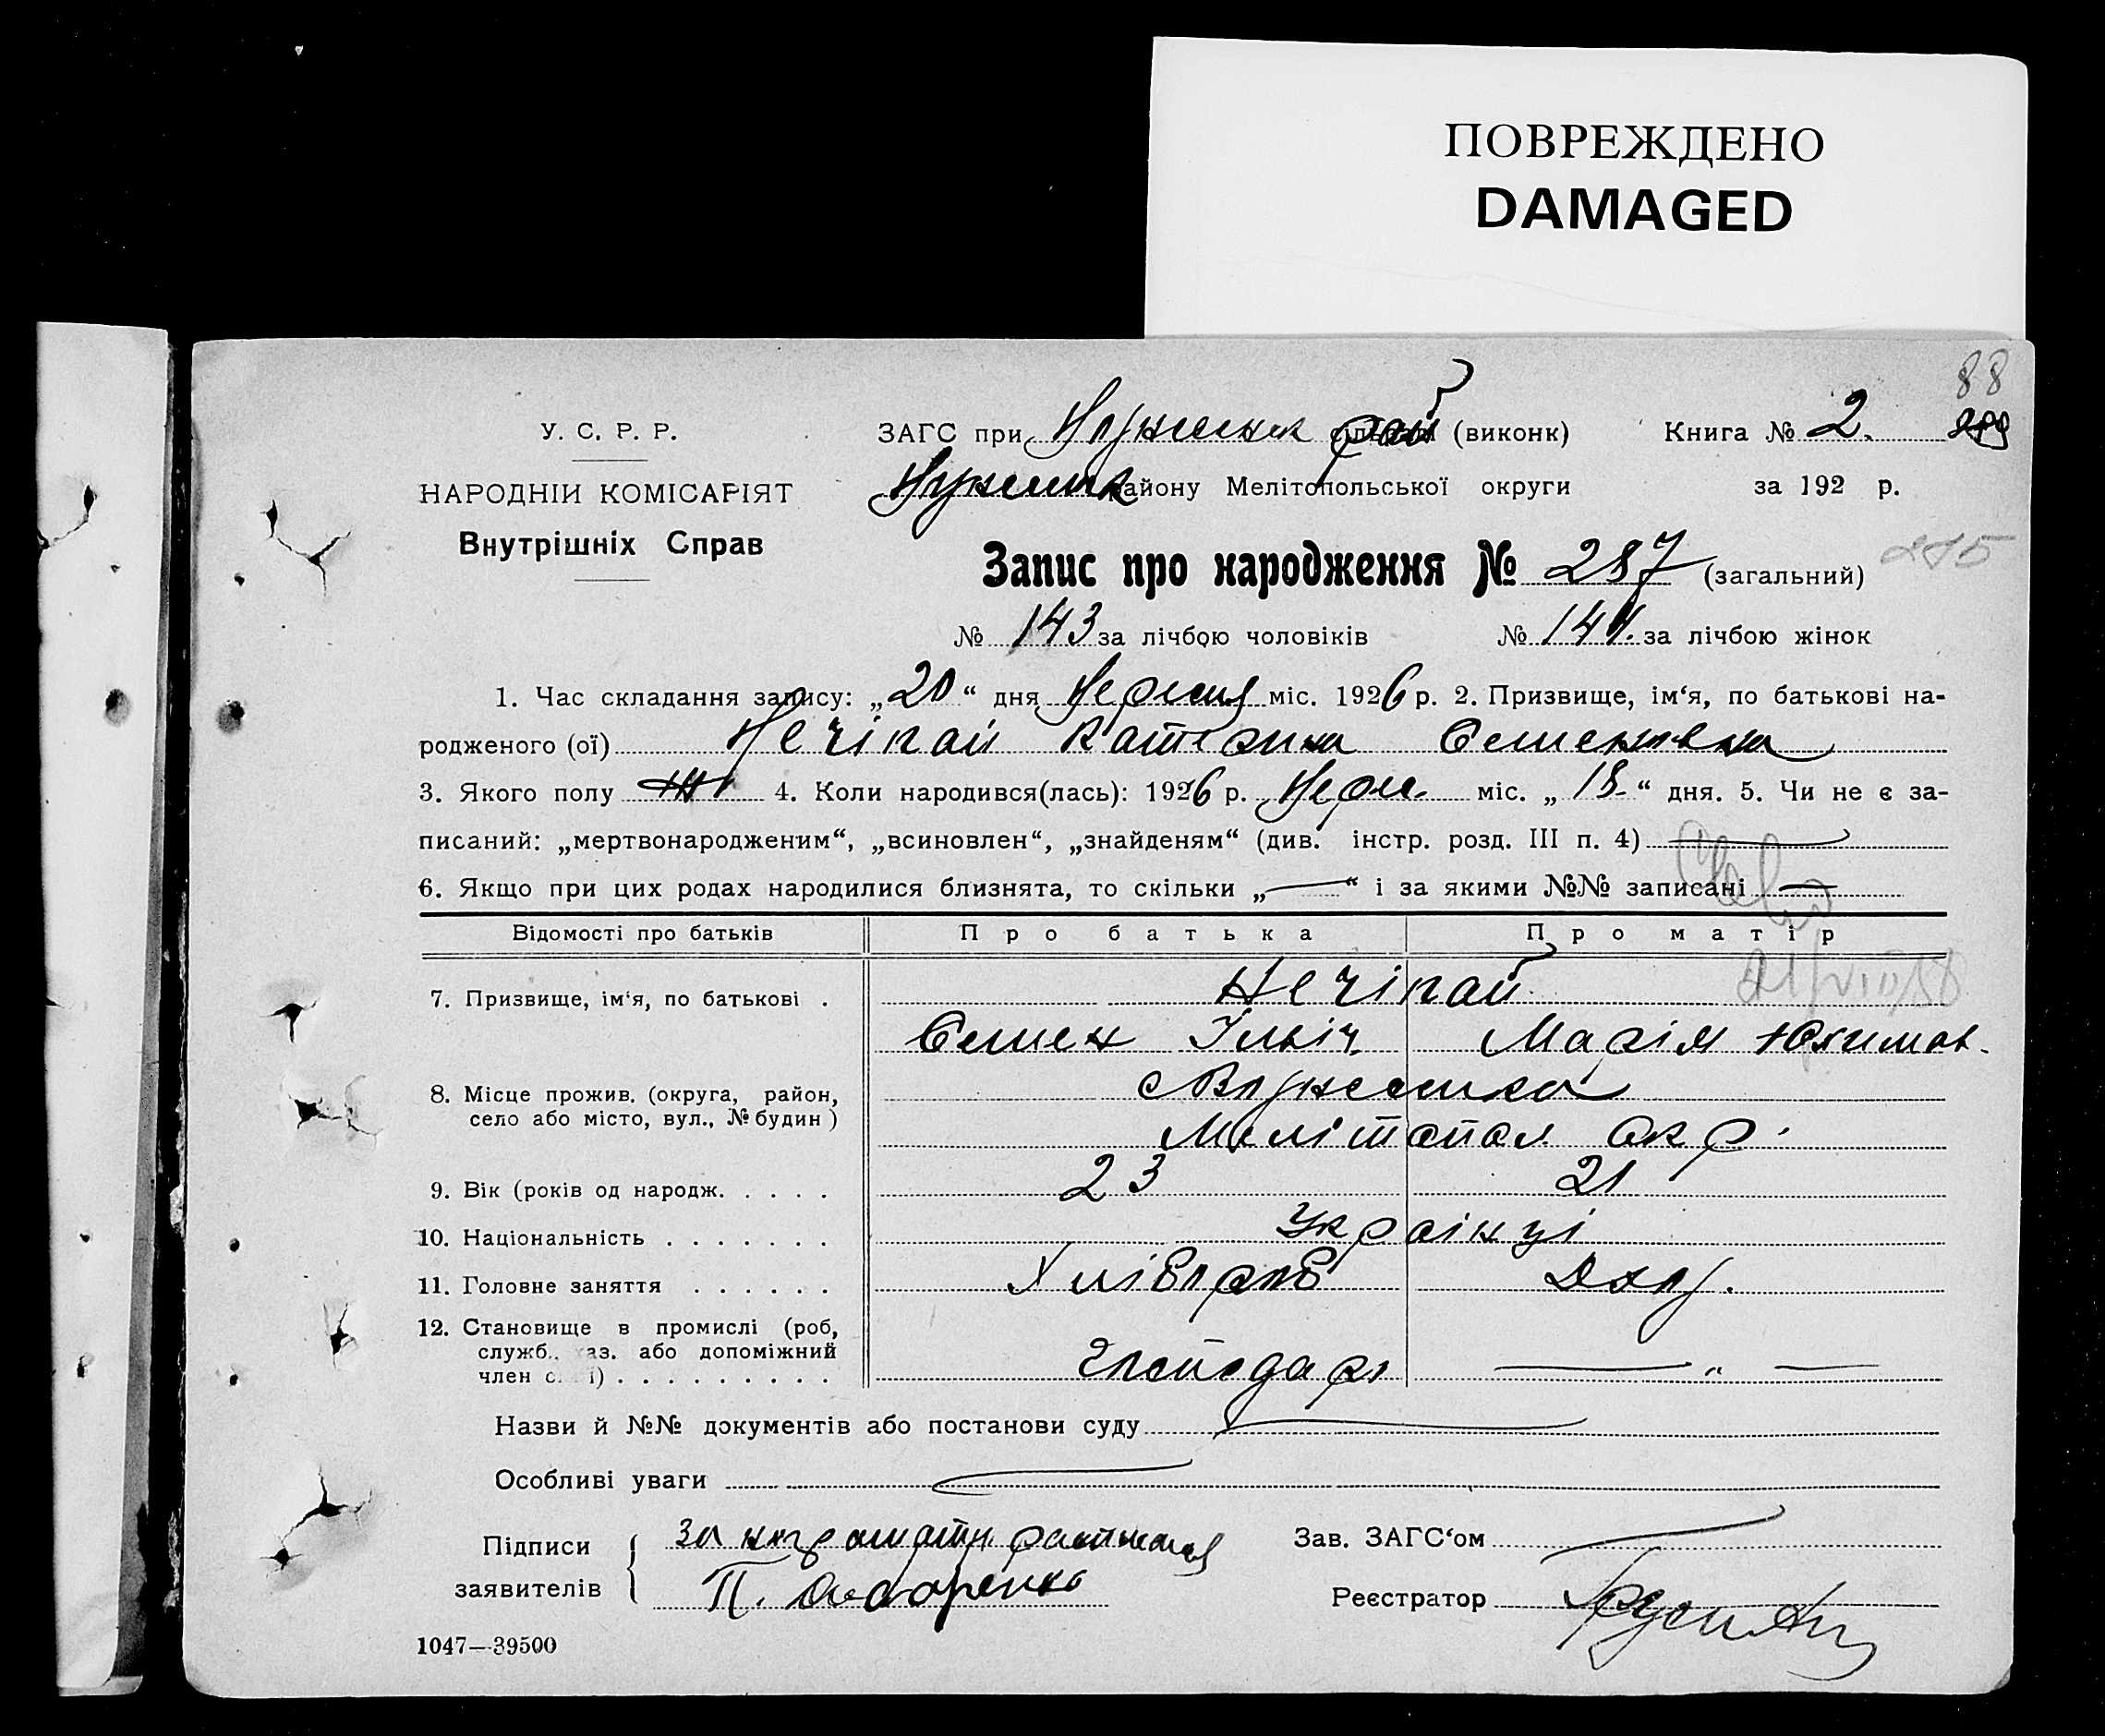 ПОВРЕЖДЕНО
DAMAGED
88
У. С. Р. Р.
ЗАГС при рай (виконк) Книга № 2.
НАРОДНІЙ КОМІСАРІЯТ
району Мелітопольської округи за 192 р.
Внутрішніх Справ
Запис про народження № 287 (загальний)
№ 143 за лічбою чоловіків № 144. за лічбою жінок
1. Час складання запису: „20“ дня Червня міс. 1926 р. 2. Призвище, ім‘я, по батькові на-
родженого (ої) Нечіпай Катерина Семенівна
3. Якого полу 4. Коли народився(лась): 1926 р. Черв. міс. „18“ дня. 5. Чи не є за-
писаний: „мертвонародженим“, „всиновлен“, „знайденям“ (див. інстр. розд. III п. 4)
6. Якщо при цих родах народилися близнята, то скільки „—“ і за якими №№ записані —
Відомості про батьків Про батька Про матір
7. Призвище, ім‘я, по батькові . Нечіпай
Семен Ільіч Марія Юхимов.
8. Місце прожив. (округа, район,
село або місто, вул., № будин)
Мелітопол окр.
9. Вік (років од народж. . . . . 23 21
10. Національність . . . . . . . Українці
11. Головне заняття . . . . . . Хлібороб Дхоз.
12. Становище в промислі (роб,
служб., аз. або допоміжний
член с і) . . . . . . . . . Господар — „ —
Назви й №№ документів або постанови суду
Особливі уваги
Підписи за неграмотн. расписался Зав. ЗАГС‘ом
заявителів П. Реєстратор
1047—39500